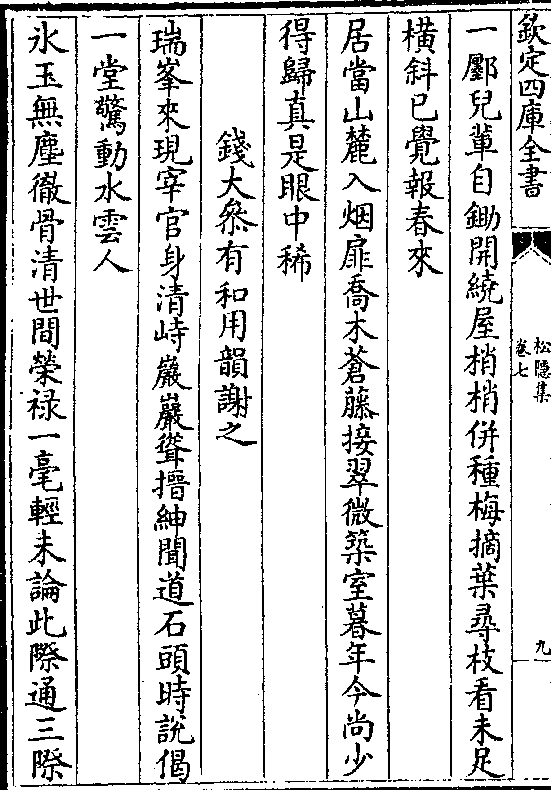 欽定四庫全書
松隱集
卷七
九
一鄽兒輩自鋤開繞屋梢梢併種梅摘葉尋枝看未足
橫斜已覺報春來
居當山麓入烟扉喬木蒼藤接翠微築室暮年今尚少
得歸真是眼中稀
錢大叅有和用韻謝之
瑞峯來現宰官身清峙巖巖聳搢紳聞道石頭時說偈
一堂驚動水雲人
氷玉無塵徹骨清世間榮禄一毫輕未論此際通三際